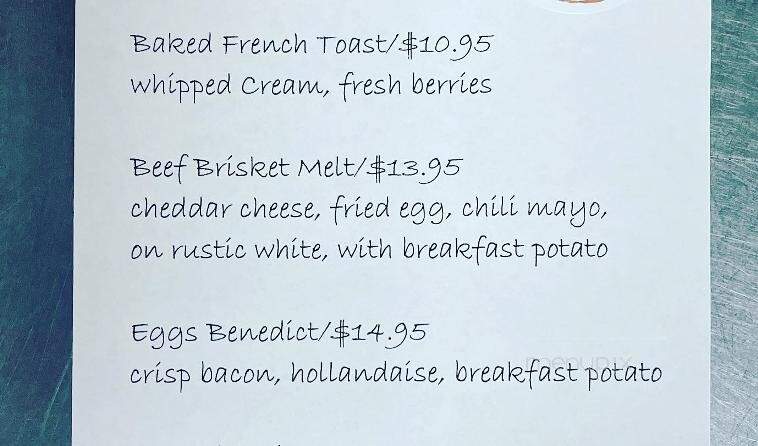 Baked French Toast/$10.95
whipped Cream, fresh berries
Beef Brisket Melt/$13.95
cheddar cheese, fried egg, chili mayo,
on rustic white, with breakfast potato
Eggs Benedict/$14.95
menupix
crisp bacon, hollandaise, breakfast potato